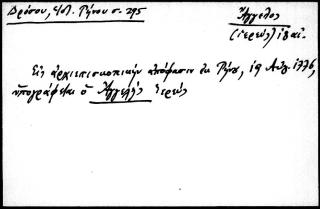 Δρόσου, Ἱστ. Τήνου σ. 295
Ἄγγελος
(ἱερεύς) ιβ αἰ.
Εἰς ἀρχιεπισκοπικὴν ἀπόφασιν ἐκ Τήνου, 19 Αὐγ. 1776,
ὑπογράφεται ὁ Ἀγγελῆς ἱερεύς